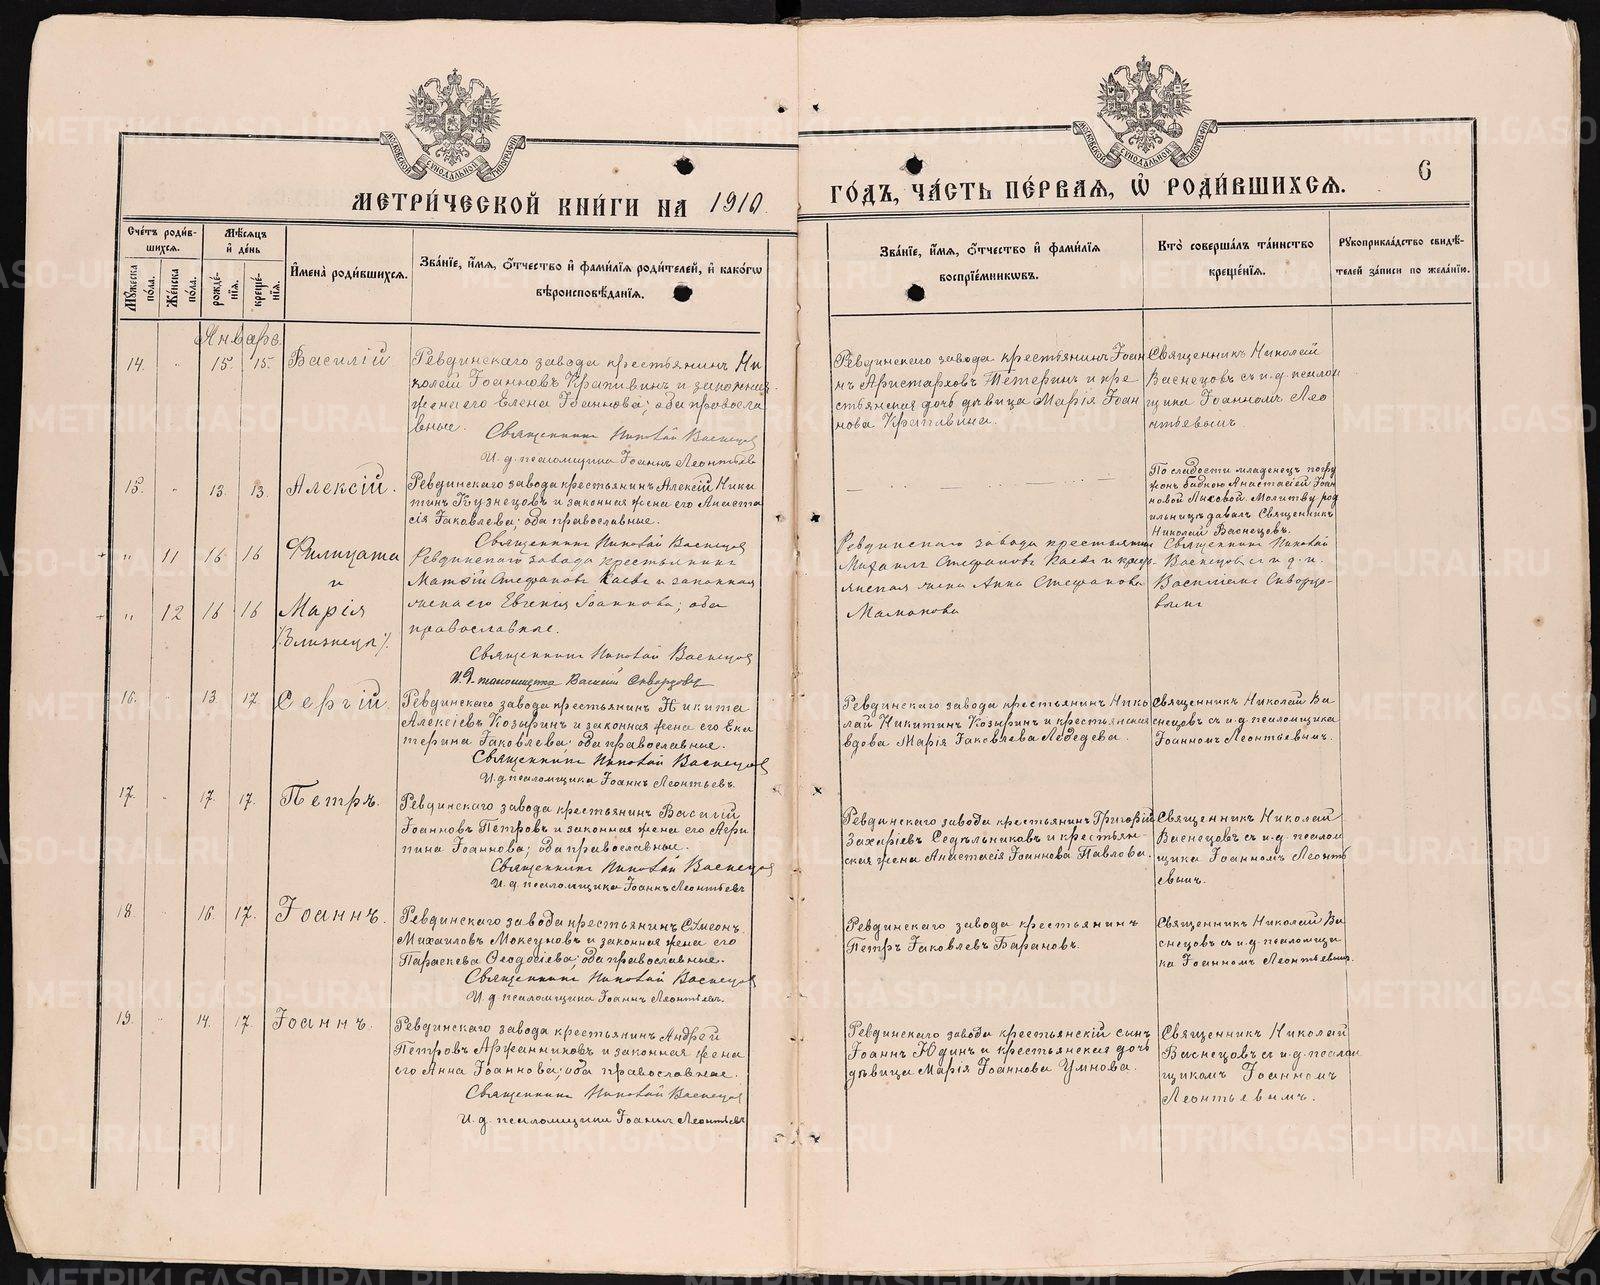 МЕТРИ́ЧЕСКОЙ КНИ́ГИ НА 1910
ГО́ДЪ, ЧА́СТЬ ПЕ́РВАѦ, Ѡ҆ РОДИ́ВШИХСѦ.
6
МОСКОВСКОЙ СѴНОДАЛЬНОЙ ТИПОГРАФІИ
МОСКОВСКОЙ СѴНОДАЛЬНОЙ ТИПОГРАФІИ
Сче́тъ роди́в-
шихсѧ.
Мꙋ́жеска по́ла.
Же́нска по́ла.
Мѣ́сѧцъ
и҆ де́нь
рожде́-
нїѧ.
креще́-
нїѧ.
И҆мена̀ роди́вшихсѧ.
Зва́нїе, и҆́мѧ, ѻ҆́тчество и҆ фами́лїѧ роди́телей, и҆ како́гѡ
вѣроисповѣ́данїѧ.
Зва́нїе, и҆́мѧ, ѻ҆́тчество и҆ фами́лїѧ
воспрїе́мникѡвъ.
Кто̀ соверша́лъ та́инство
креще́нїѧ.
Рꙋкоприкла́дство свидѣ́-
телей за́писи по жела́нїю.
Январь
14. " 15. 15. Василій
Ревдинскаго завода крестьянинъ Ни
колай Іоанновъ Крапивинъ и законная
жена его Елена Іоаннова; оба правосла
вные.
Священникъ Николай Васнецов
И. д. псаломщика Іоаннъ Леонтьев
Ревдинскаго завода крестьянинъ Іоан
нъ Аристарховъ Тетеринъ и кре
стьянская дочь дѣвица Марія Іоан
нова Крапивина.
Священникъ Николай
Васнецовъ съ и. д. псалом
щика Іоанномъ Лео
нтьевым
15. " 13. 13. Алексій.
Ревдинскаго завода крестьянинъ Алексій Ники
тинъ Кузнецовъ и законная жена его Анаста
сія Іаковлева; оба православные.
Священникъ Николай Васнецов
По слабости младенецъ погру
женъ бабкою Анастасіей Іоан
новой Молитву род
ильницѣ давалъ Священникъ
Николай Васнецовъ.
" 11 16 16 Филицата
и
" 12 16 16 Марія
/Близнецы/.
Ревдинскаго завода крестьянинъ
Матѳій Стефановъ Каевъ и законная
жена его Евгенія Іоаннова; оба
православные.
Священникъ Николай Васнецов
И. д. псаломщика Василій Скворцовъ
Ревдинскаго завода крестьянин
Михаилъ Стефановъ Каевъ и крест
янская жена Анна Стефанова
Мамонова
Священникъ Николай
Васнецовъ съ и. д. п.
Василіемъ Скворцо-
вымъ
16. " 13 17 Сергій.
Ревдинскаго завода крестьянинъ Никита
Алексіевъ Козыринъ и законная жена его Ека
терина Іаковлева; оба православные.
Священникъ Николай Васнецов
И. д. псаломщика Іоаннъ Леонтьевъ.
Ревдинскаго завода крестьянинъ Нико
лай Никитинъ Козыринъ и крестьянская
вдова Марія Іаковлева Лебедева.
Священникъ Николай Ва
снецовъ съ и. д. псаломщика
Іоанномъ Леонтьевымъ.
17. " 17. 17. Петръ.
Ревдинскаго завода крестьянинъ Василій
Іоанновъ Петровъ и законная жена его Агри
пина Іоаннова; оба православные.
Священникъ Николай Васнецов
И. д. псаломщика Іоаннъ Леонтьевъ
Ревдинскаго завода крестьянинъ Григорій
Захаріевъ Седѣльниковъ и крестьян-
ская жена Анастасія Іоаннова Павлова.
Священникъ Николай
Васнецовъ съ и. д. псалом
щика Іоанномъ Леонть
евым.
18. " 16. 17. Іоаннъ.
Ревдинскаго завода крестьянинъ Сѵмеонъ
Михаиловъ Моксуновъ и законная жена его
Параскева Ѳеодосіева; оба православные.
Священникъ Николай Васнецов
И. д. псаломщика Іоаннъ Леонтьевъ.
Ревдинскаго завода крестьянинъ
Петръ Іаковлевъ Барановъ.
Священникъ Николай Ва
снецовъ съ и. д. псаломщи
ка Іоанномъ Леонтьевымъ.
19. " 14. 17. Іоаннъ.
Ревдинскаго завода крестьянинъ Андрей
Петровъ Аржанниковъ и законная жена
его Анна Іоаннова; оба православные.
Священникъ Николай Васнецов
И. д. псаломщика Іоаннъ Леонтьевъ
Ревдинскаго завода крестьянскій сынъ
Іоаннъ Юдинъ и крестьянская дочь
дѣвица Марія Іоаннова Умнова.
Священникъ Николай
Васнецовъ съ и. д. псалом
щикомъ Іоанномъ
Леонтьевымъ.
METRIKI.GASO-URAL.RU